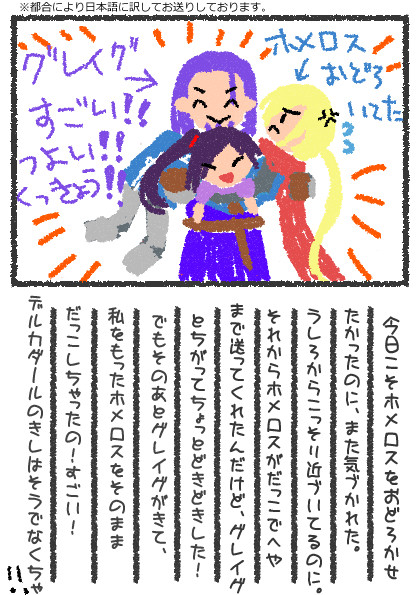 ※都合により日本語に訳してお送りしております。
グレイグ
すごい!!
つよい!!
くっきょう!
ホメロス
おどろ
いてた
今日こそホメロスをおどろかせ
たかったのに、また気づかれた。
うしろからこっそり近づいてるのに。
それからホメロスがだっこでへや
まで送ってくれたんだけど、グレイグ
とちがってちょっとどきどきした!
でもそのあとグレイグがきて、
私をもったホメロスをそのまま
だっこしちゃったの!すごい!
デルカダールのきしはそうでなくちゃ
!!